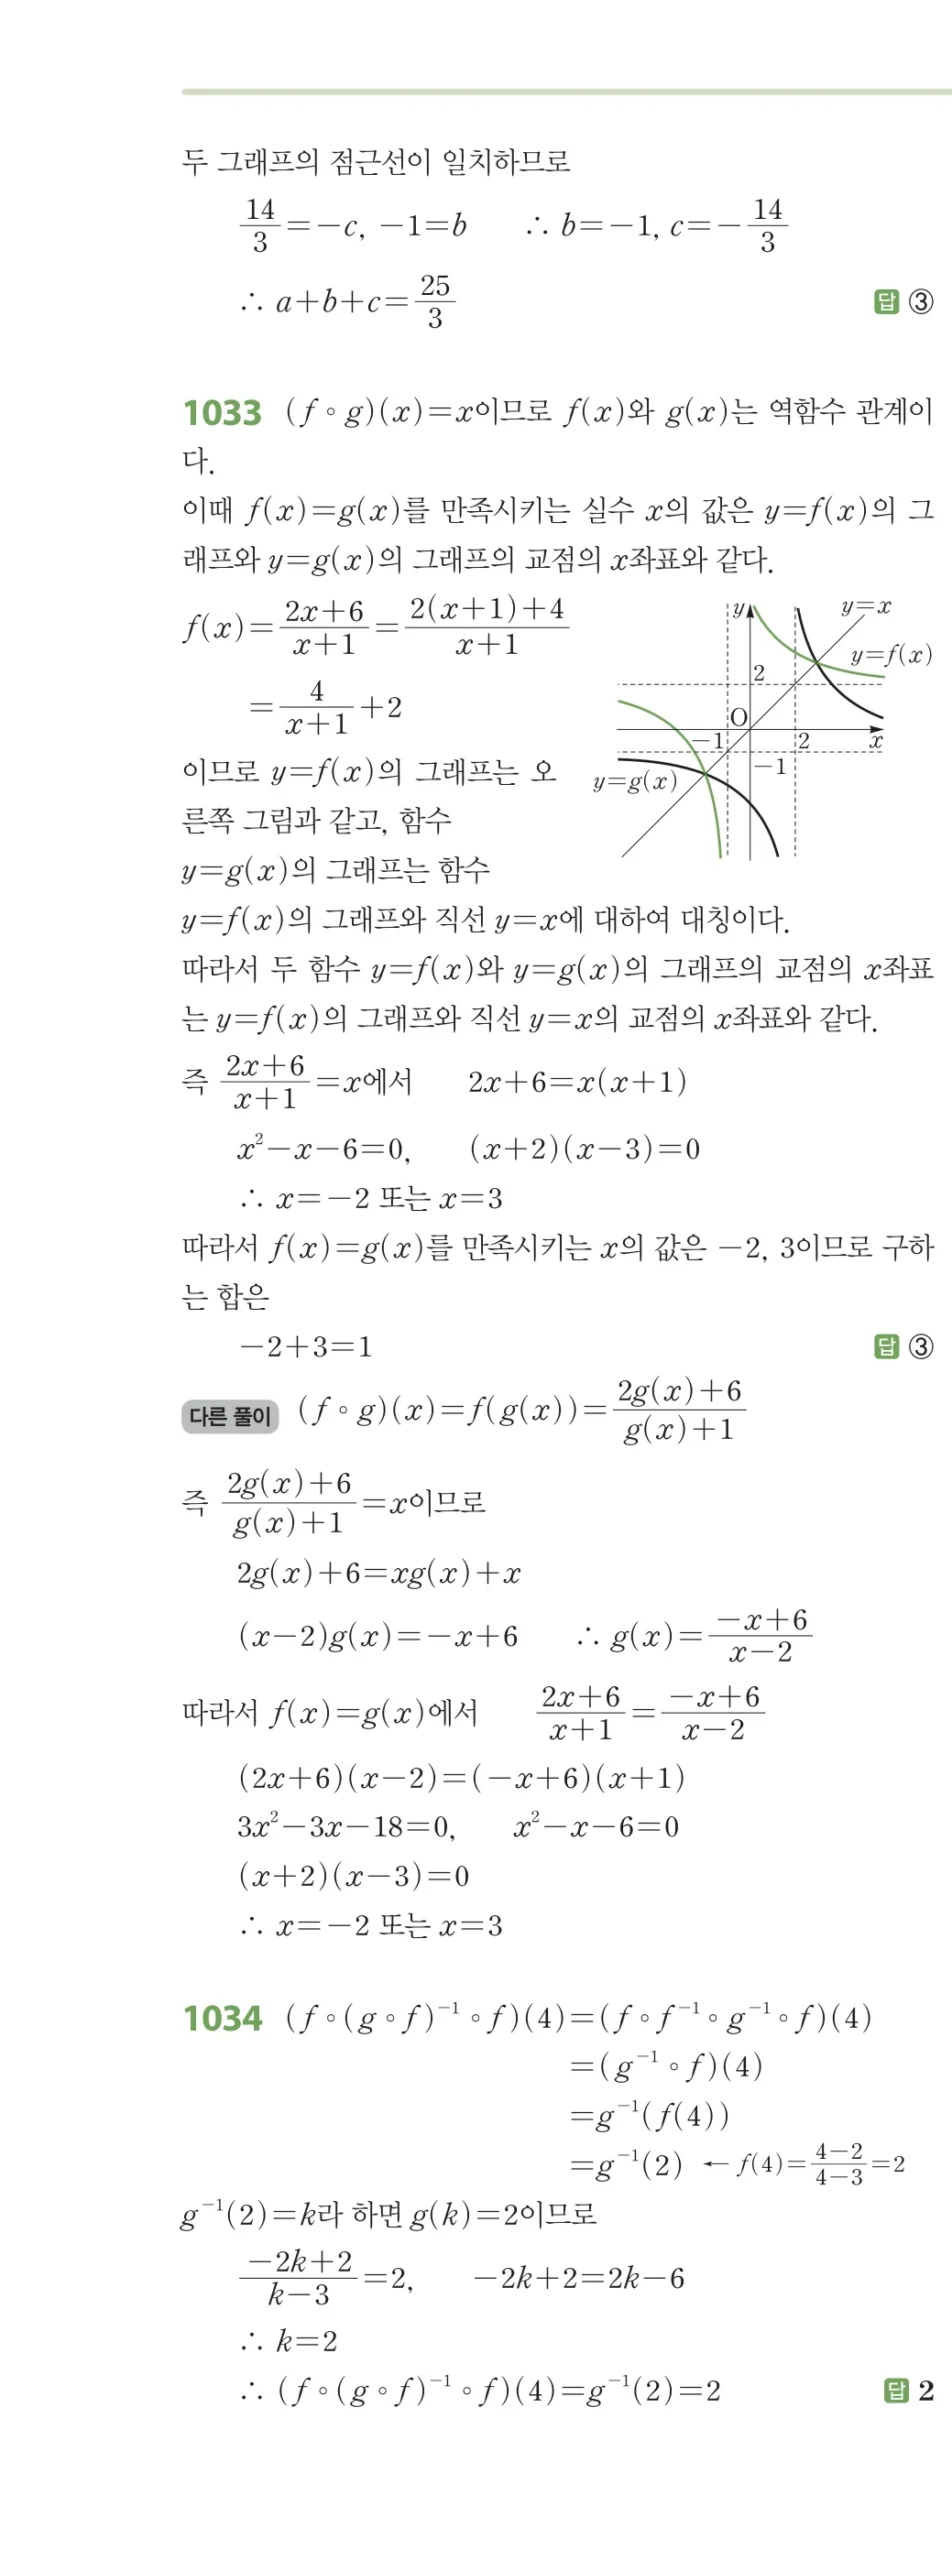 두 그래프의 점근선이 일치하므로
14/3=-c, -1=b ∴ b=-1, c=-14/3
∴ a+b+c=25/3 답 ③
1033 (f∘g)(x)=x이므로 f(x)와 g(x)는 역함수 관계이
다.
이때 f(x)=g(x)를 만족시키는 실수 x의 값은 y=f(x)의 그
래프와 y=g(x)의 그래프의 교점의 x좌표와 같다.
f(x)=(2x+6)/(x+1)={2(x+1)+4}/(x+1)
=4/(x+1)+2
이므로 y=f(x)의 그래프는 오
른쪽 그림과 같고, 함수
y=g(x)의 그래프는 함수
y
y=x
y=f(x)
2
O
-1
2
x
-1
y=g(x)
y=f(x)의 그래프와 직선 y=x에 대하여 대칭이다.
따라서 두 함수 y=f(x)와 y=g(x)의 그래프의 교점의 x좌표
는 y=f(x)의 그래프와 직선 y=x의 교점의 x좌표와 같다.
즉 (2x+6)/(x+1)=x에서 2x+6=x(x+1)
x²-x-6=0, (x+2)(x-3)=0
∴ x=-2 또는 x=3
따라서 f(x)=g(x)를 만족시키는 x의 값은 -2, 3이므로 구하
는 합은
-2+3=1 답 ③
다른 풀이 (f∘g)(x)=f(g(x))={2g(x)+6}/{g(x)+1}
즉 {2g(x)+6}/{g(x)+1}=x이므로
2g(x)+6=xg(x)+x
(x-2)g(x)=-x+6 ∴ g(x)=(-x+6)/(x-2)
따라서 f(x)=g(x)에서 (2x+6)/(x+1)=(-x+6)/(x-2)
(2x+6)(x-2)=(-x+6)(x+1)
3x²-3x-18=0, x²-x-6=0
(x+2)(x-3)=0
∴ x=-2 또는 x=3
1034 (f∘(g∘f)⁻¹∘f)(4)=(f∘f⁻¹∘g⁻¹∘f)(4)
=(g⁻¹∘f)(4)
=g⁻¹(f(4))
=g⁻¹(2) ← f(4)=(4-2)/(4-3)=2
g⁻¹(2)=k라 하면 g(k)=2이므로
(-2k+2)/(k-3)=2, -2k+2=2k-6
∴ k=2
∴ (f∘(g∘f)⁻¹∘f)(4)=g⁻¹(2)=2 답 2